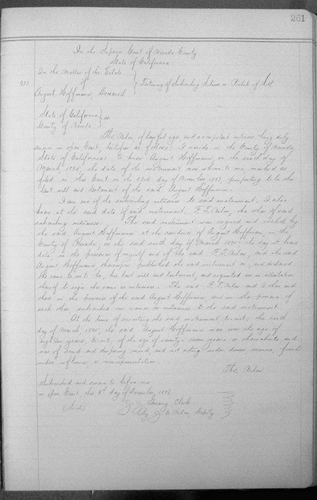 261
In the Superior Court of County
State of California
In the Matter of the Estate
of
August Hoffmann, Deceased
Testimony of Subscribing Witness on Probate of Will
State of California
County of
of lawful age and competent witness, being duly
sworn in open Court, testifies as follows: I reside in the County of
State of California; I knew August Hoffmann, on the sixth day of
March 1895, the date of the instrument now shown to me, marked as
filed in this Court on the day of 1897, purporting to be the
last will and testament of the said August Hoffmann.
I am one of the subscribing witnesses to said instrument, I also
knew at the said date of said instrument, the other of said
subscribing witnesses. The said instrument was signed and sealed by
the said August Hoffmann at the residence of August Hoffmann, in the
County of on the said sixth day of March 1895, the day it bears
date, in the presence of myself and of the said and the said
August Hoffmann thereupon published the said instrument as, and declared
the same to me to be, his last will and testament, and requested us in attestation
thereof to sign the same as witnesses. The said and I then and
there in the presence of the said August Hoffmann and in the presence of
each other subscribed our names as witnesses to the said instrument.
At the time of executing the said instrument to wit: the sixth
day of March, 1895, the said August Hoffmann was over the age of
eighteen years, to wit, of the age of seventy years or thereabouts and
was of sound and disposing mind, and not acting under duress, menace, fraud,
undue influence or misrepresentation.
Subscribed and sworn to before me
in open Court, this day of December, 1897
(Seal) Clerk
By Deputy